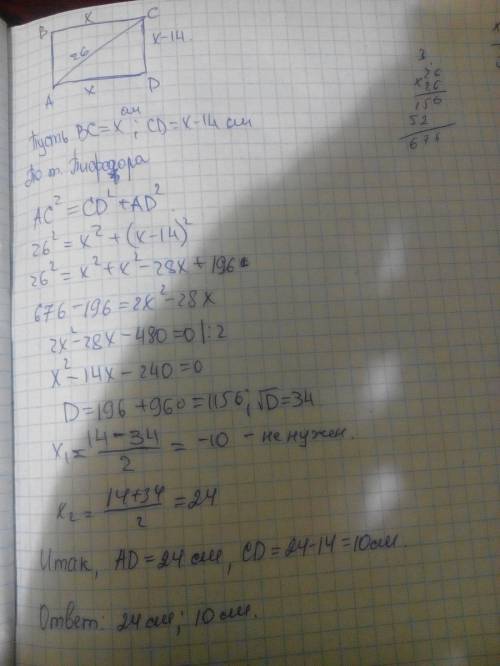 B x C
26
x-14
A x D
3.
26
x26
156
52
676
Пусть BC=x см; CD=x-14 см
По т. Пифагора
AC²=CD²+AD²
26²=x²+(x-14)²
26²=x²+x²-28x+196
676-196=2x²-28x
2x²-28x-480=0 |:2
x²-14x-240=0
D=196+960=1156; √D=34
x₁=(14-34)/2=-10 - не нужен.
x₂=(14+34)/2=24
Итак, AD=24 см, CD=24-14=10см.
Ответ: 24 см; 10 см.